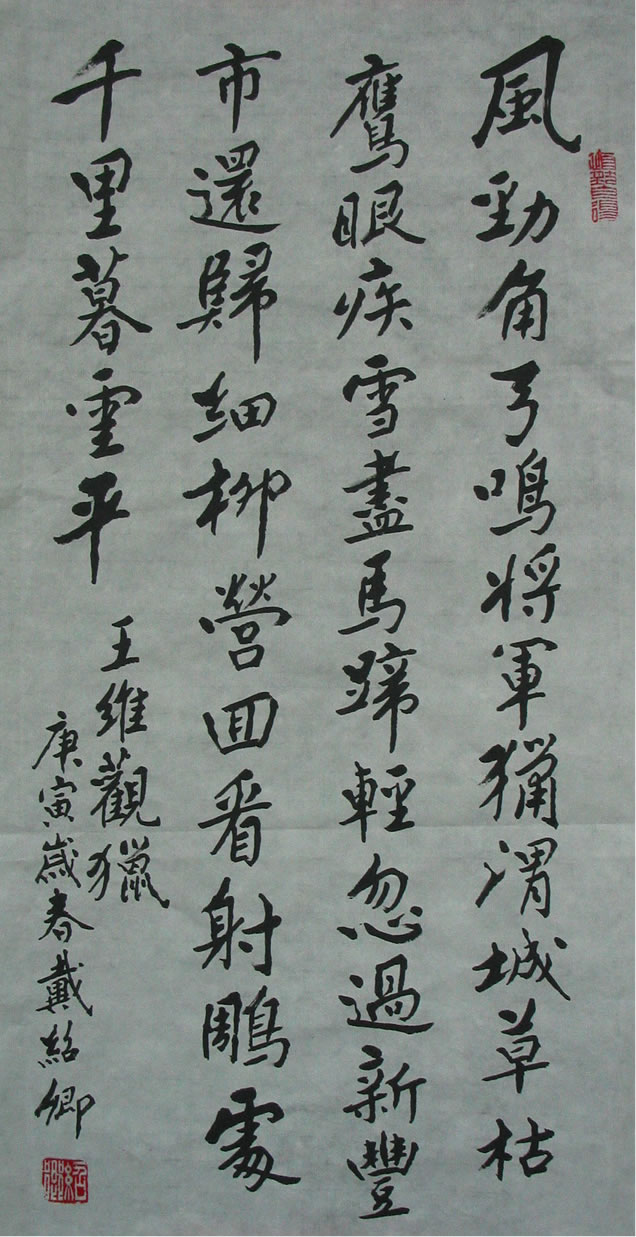 風勁角弓鳴将軍獵渭城草枯
鷹眼疾雪盡馬蹄輕忽過新豐
市還歸細柳營回看射鵰處
千里暮雲平
王維觀獵
庚寅歲春戴紹卿